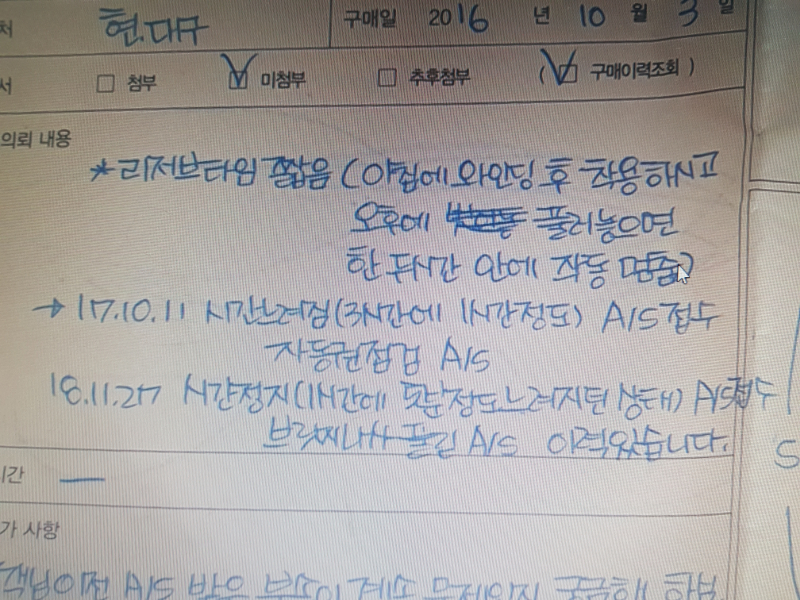 처 현.대구 구매일 2016 년 10 월 3 일
서 첨부 미첨부 추후첨부 ( 구매이력조회 )
의뢰 내용
*리저브타임 짧음 (아침에 와인딩 후 착용하시고
오후에 풀러놓으면
한 두시간 안에 작동 멈춤)
→ 17.10.11 시간느려짐(3시간에 1시간정도) A/S 접수
자동권점검 A/S
18.11.27 시간정지(1시간에 5분정도느려지던 상태) A/S접수
브릿지나사 풀림 A/S 이력있습니다.
시간 —
가 사항
객님이전 A/S 받은 부분이 계속 문제인지 궁금해
S